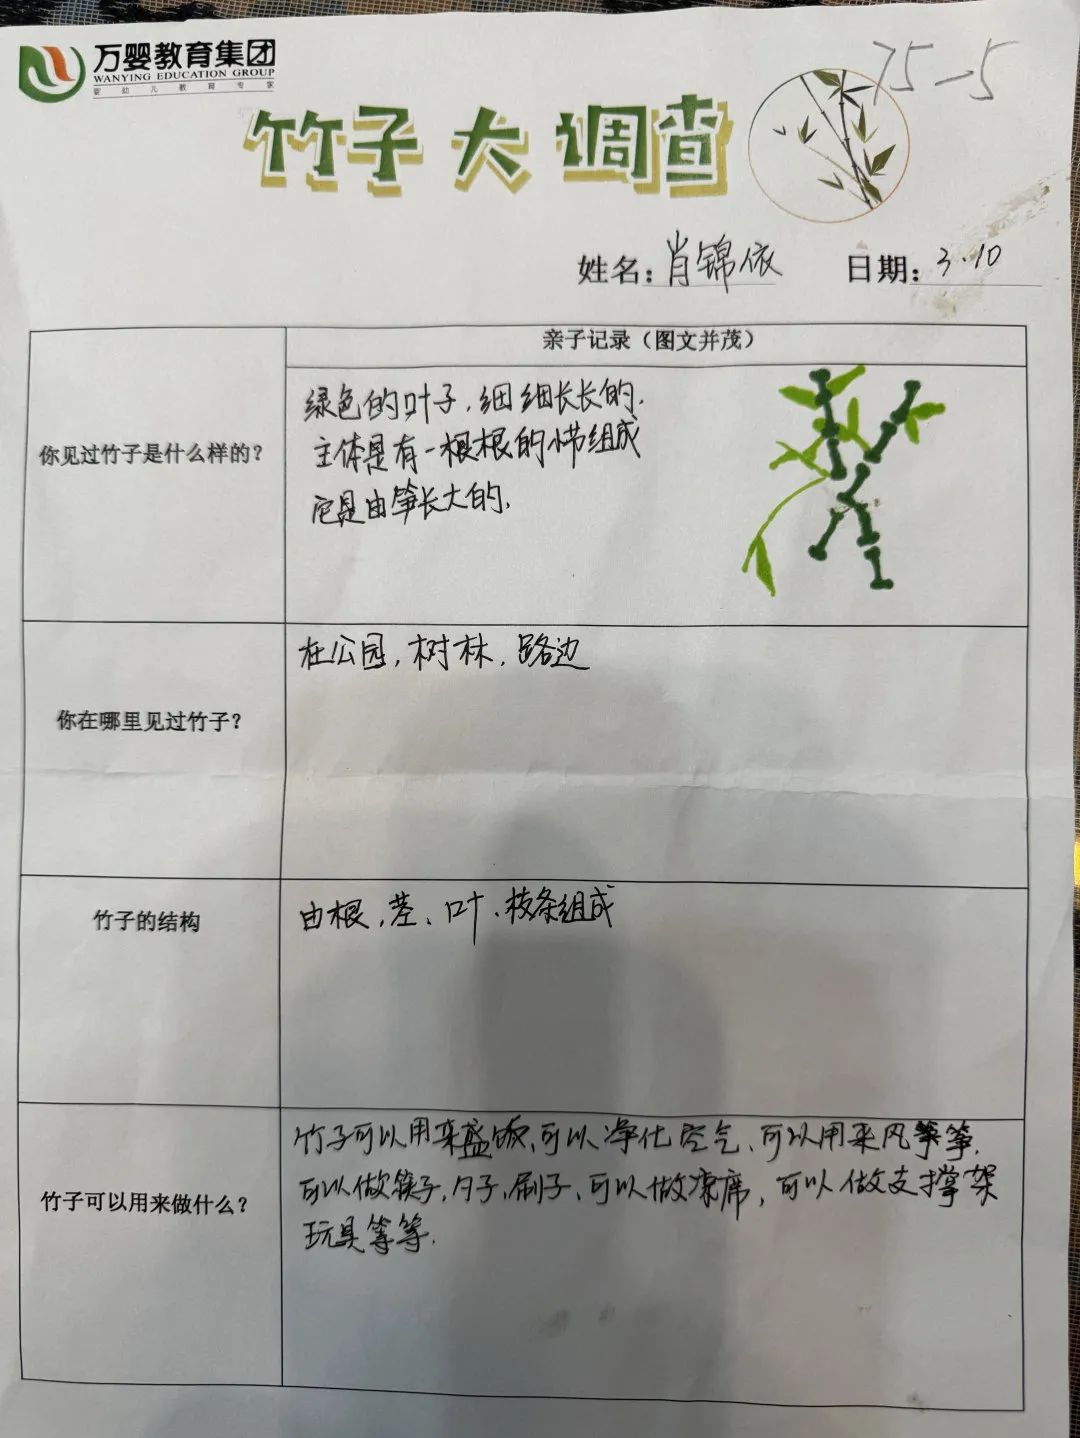 万婴教育集团
WANYING EDUCATION GROUP
婴幼儿教育专家
75-5
竹子大调查
姓名：肖锦依 日期：3.10
亲子记录（图文并茂）
你见过竹子是什么样的？
绿色的叶子，细细长长的.
主体是有一根根的小节组成
它是由笋长大的.
你在哪里见过竹子？
在公园，树林，路边
竹子的结构
由根，茎、叶、枝条组成
竹子可以用来做什么？
竹子可以用来盛饭、可以净化空气、可以用来风筝.
可以做筷子，勺子，刷子、可以做凉席，可以做支撑架
玩具等等.